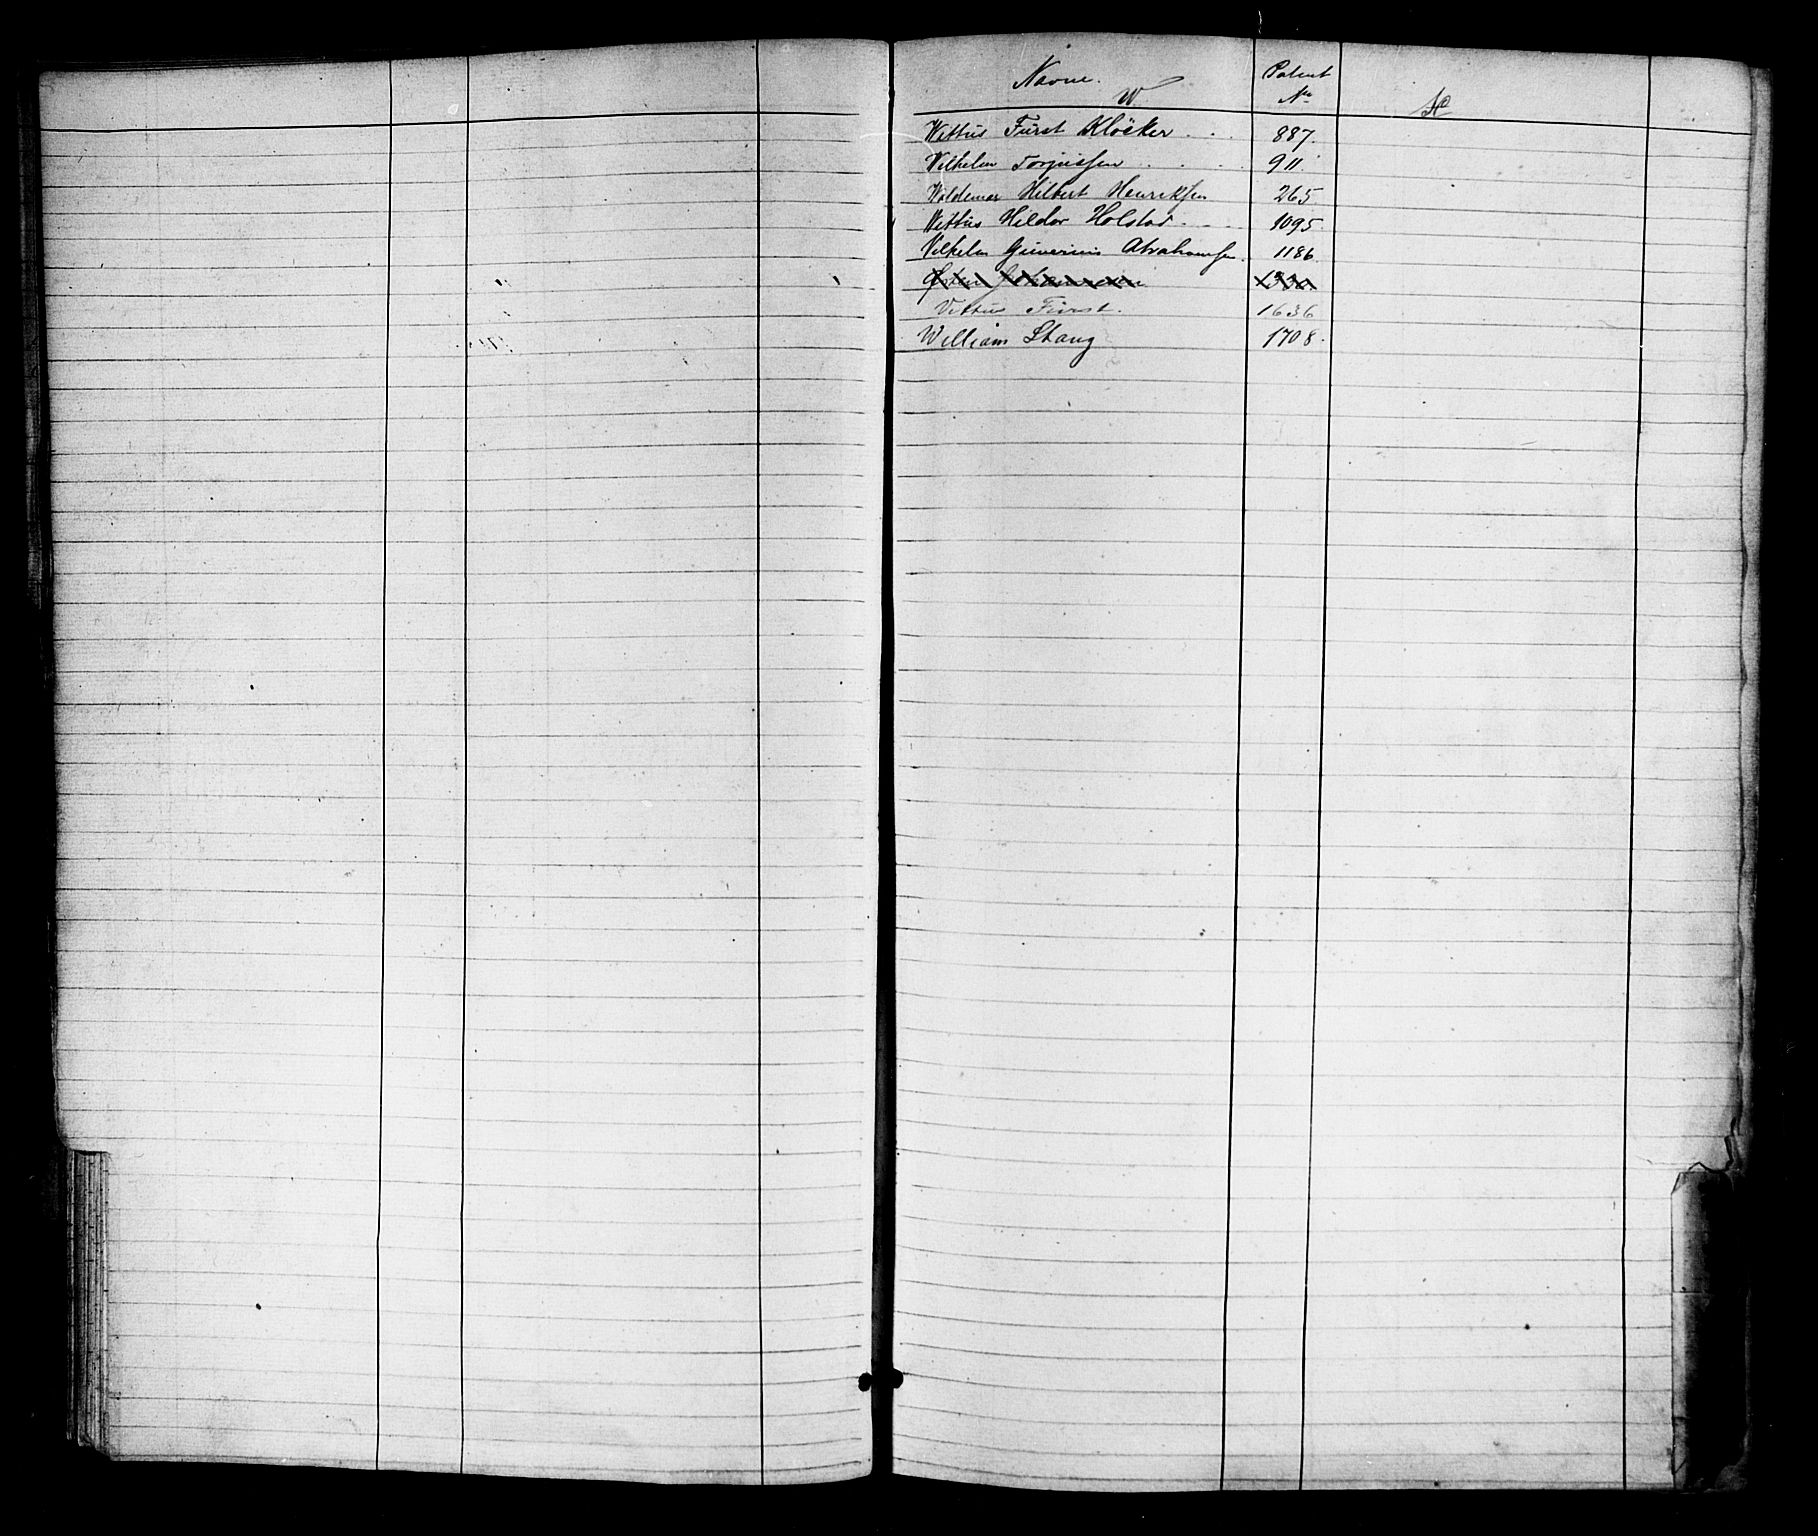 Navne. Patent
W No
Wittus Fürst Klöcker . . . 887.
Vilhelm Torjussen . . . . 911.
Waldemar Hilbert Henriksen 265
Wittus Hildor Holstad . . . 1095
Vilhelm Guneriius Abrahamsen. 1186
Østen Johannesen
Vittus Fürst. 1636
William Stang 1708.